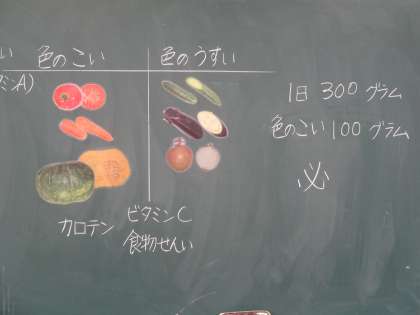 い
色のこい
色のうすい
ミンA)
1日 300グラム
色のこい100グラム
必
カロテン
ビタミンC
食物せんい